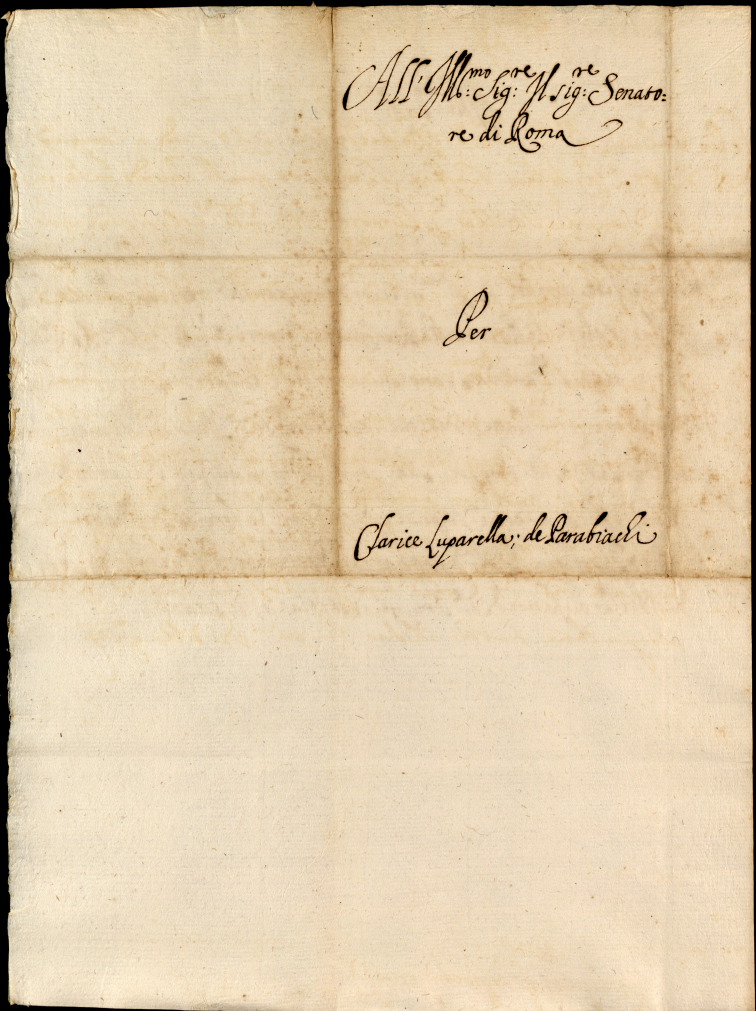 All' Ill:mo Sig:re Il sig:re Senato=
re di Roma
Per
Clarice Luparella; de Parabiachi